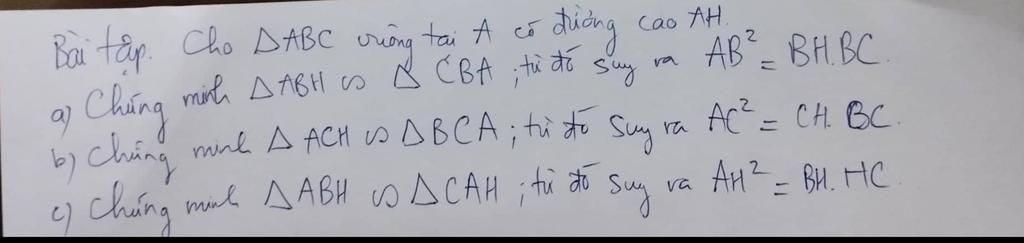 Bài tập. Cho △ABC vuông tại A có đường cao AH.
a) Chứng minh △ABH ∽ △CBA ; từ đó suy ra AB² = BH.BC.
b) Chứng minh △ACH ∽ △BCA ; từ đó suy ra AC² = CH.BC.
c) Chứng minh △ABH ∽ △CAH ; từ đó suy ra AH² = BH.HC.